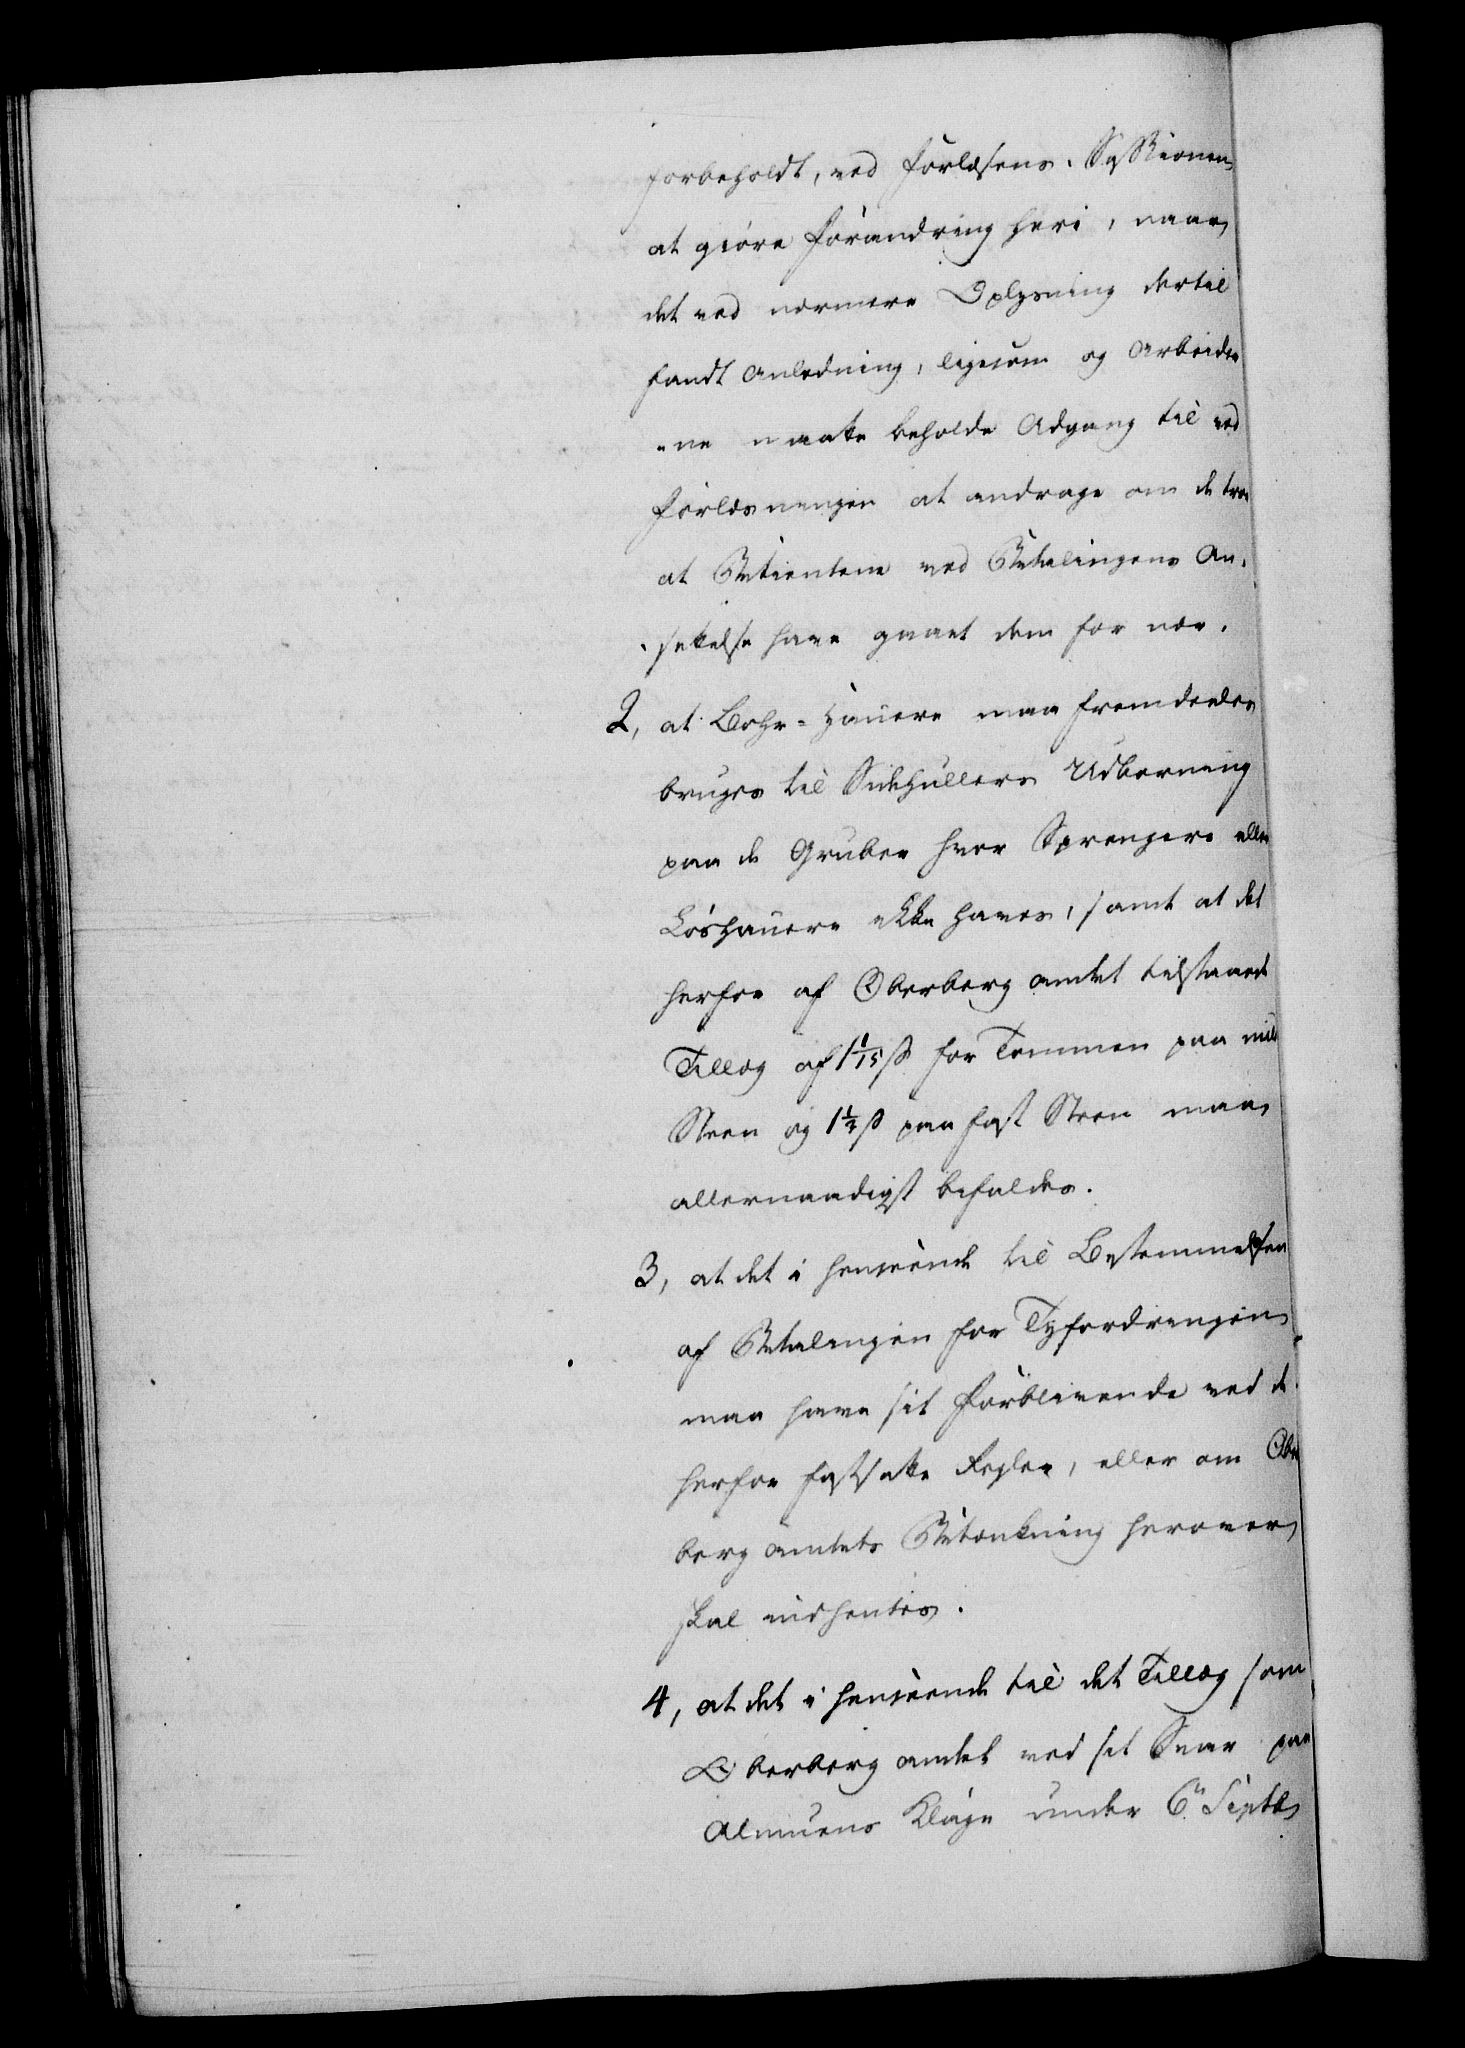 forbeholdt, ved Forlæsens-Sessionen
at giöre Forandring heri, naar
det ved nærmere Oplysning dertil
fandt Anledning, ligesom og Arbeider-
-ne maatte beholde Adgang til ved
Forlæsningen at andrage om de troe
at Betienterne ved Betalingens An-
-settelse have gaaet dem for nær.
2, at Bohr-Hauere maa fremdeeles
bruges til Sidehullers Udboring
paa de Gruber hvor Sprengere eller
Löshauere ikke haves, samt at det
herfor af Oberbergamtet tilstaaede
Tillæg af 1 1/15 ß for Tommen paa mild
Steen og 1 1/2 ß paa fast Steen maa
allernaadigst befales.
3, at det i Henseende til Bestemmelsen
af Betalingen for Tyfordringen
maa have sit Forblivende ved de
herfor fastsatte Regler, eller om Ober
bergamtets Betænkning herover
skal indhentes.
4, at det i Henseende til det Tillæg som
Oberbergamtet ved sit Svar paa
Almuens Klage under 6te Septbr